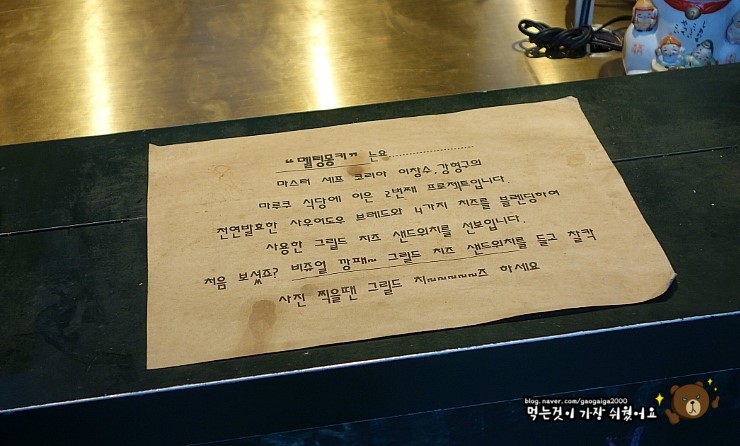 "멜팅몽키" 는요........................
마스터 셰프 코리아 이창수, 강형구의
마루쿠 식당에 이은 2번째 프로젝트입니다.
천연발효한 사우어도우 브레드와 4가지 치즈를 블렌딩하여
사용한 그릴드 치즈 샌드위치를 선보입니다.
처음 보셨죠? 비쥬얼 깡패~ 그릴드 치즈 샌드위치를 들고 찰칵
사진 찍을땐 그릴드 치~~~~~즈 하세요
blog.naver.com/gaogaiga2000
먹는것이 가장 쉬웠어요